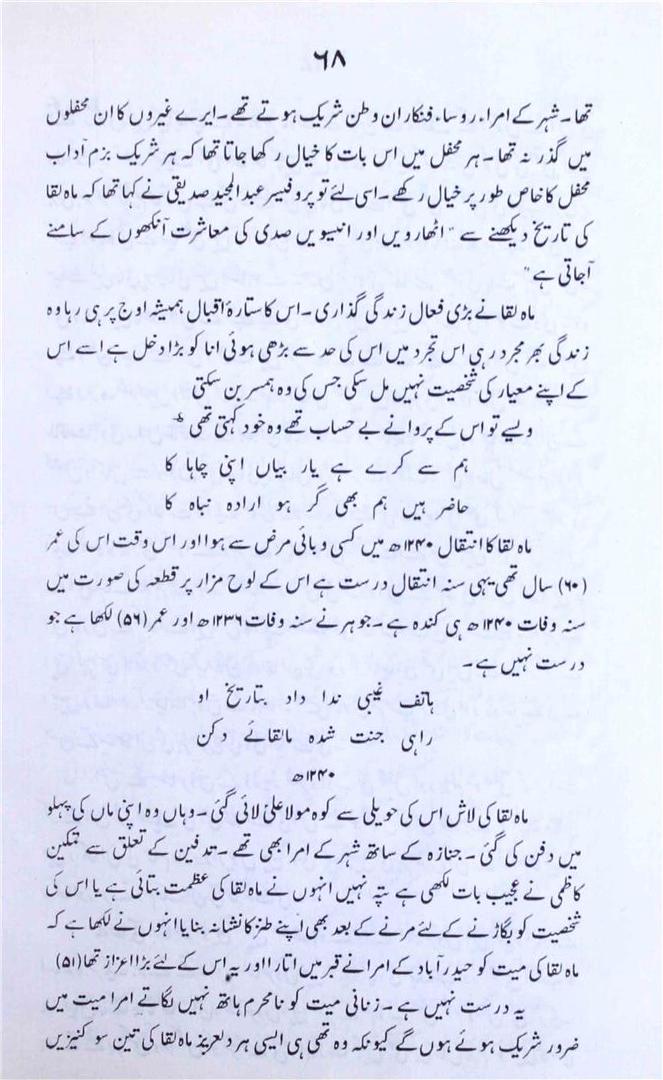 ۶۸
تھا۔ شہر کے امراء، روساء، فنکاران وطن شریک ہوتے تھے۔ ایرے غیروں کا ان محفلوں
میں گذر نہ تھا۔ ہر محفل میں اس بات کا خیال رکھا جاتا تھا کہ ہر شریک بزم آداب
محفل کا خاص طور پر خیال رکھے۔ اسی لئے تو پروفیسر عبدالمجید صدیقی نے کہا تھا کہ ماہ لقا
کی تاریخ دیکھنے سے " اٹھارویں اور انیسویں صدی کی معاشرت آنکھوں کے سامنے
آجاتی ہے"
ماہ لقا نے بڑی فعال زندگی گذاری۔ اس کا ستارۂ اقبال ہمیشہ اوج پر ہی رہا وہ
زندگی بھر مجرد رہی اس تجرد میں اس کی حد سے بڑھی ہوئی انا کو بڑا دخل ہے اسے اس
کے اپنے معیار کی شخصیت نہیں مل سکی جس کی وہ ہمسر بن سکتی
ویسے تو اس کے پروانے بے حساب تھے وہ خود کہتی تھی
ہم سے کرے ہے یار بیاں اپنی چاہا کا
حاضر ہیں ہم بھی گر ہو ارادہ نباہ کا
ماہ لقا کا انتقال ۱۲۴۰ھ میں کسی وبائی مرض سے ہوا اور اس وقت اس کی عمر
(۶۰) سال تھی یہی سنہ انتقال درست ہے اس کے لوح مزار پر قطعہ کی صورت میں
سنہ وفات ۱۲۴۰ھ ہی کندہ ہے۔ جوہر نے سنہ وفات ۱۲۳۶ھ اور عمر (۵۶) لکھا ہے جو
درست نہیں ہے۔
ہاتف غیبی ندا داد بتاریخ او
راہی جنت شدہ مالقائے دکن
۱۲۴۰ھ
ماہ لقا کی لاش اس کی حویلی سے کوہ مولا علیٰ لائی گئی۔ وہاں وہ اپنی ماں کی پہلو
میں دفن کی گئی۔ جنازہ کے ساتھ شہر کے امرا بھی تھے۔ تدفین کے تعلق سے تمکین
کاظمی نے عجیب بات لکھی ہے پتہ نہیں انہوں نے ماہ لقا کی عظمت بتائی ہے یا اس کی
شخصیت کو بگاڑنے کے لئے مرنے کے بعد بھی اپنے طنز کا نشانہ بنایا انہوں نے لکھا ہے کہ
ماہ لقا کی میت کو حیدرآباد کے امرا نے قبر میں اتارا اور یہ اس کے لئے بڑا اعزاز تھا (۵۱)
یہ درست نہیں ہے۔ زنانی میت کو نامحرم ہاتھ نہیں لگاتے امرا میت میں
ضرور شریک ہوئے ہوں گے کیونکہ وہ تھی ہی ایسی ہر دلعزیز ماہ لقا کی تین سو کنیزیں